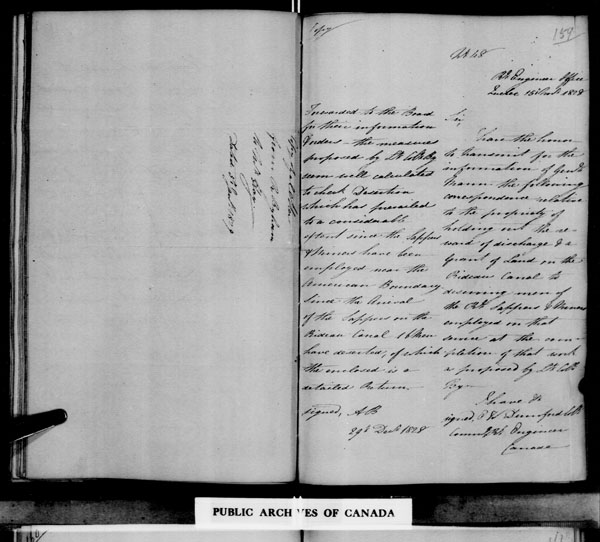 Copy
159
No 48
Rl Engineer Office
Quebec 15 Novr 1828
Sir,
I have the honor
to transmit for the
information of Genl
Mann the following
correspondence relative
to the propriety of
holding out the re-
ward of discharge & a
Grant of Land on the
Rideau Canal to
deserving men of
the Rl Sappers & Miners
employed on that
service at the com-
pletion of that work
as proposed by Lt Col
By
I have &
signed, E W Durnford Col
Commg Rl Engineer
Canada
Forwarded to the Board
for their information
& orders - the measures
proposed by Lt Col By
seem well calculated
to check Desertion
which has prevailed
to a considerable
extent since the Sappers
& Miners have been
employed near the
American Boundary
Since the Arrival
of the Sappers on the
Rideau Canal 16 Men
have deserted, of which
the enclosed is a
detailed Return
signed, A B
29th Decr 1828
Copy of a Letter
from
to
Dated
PUBLIC ARCHIVES OF CANADA